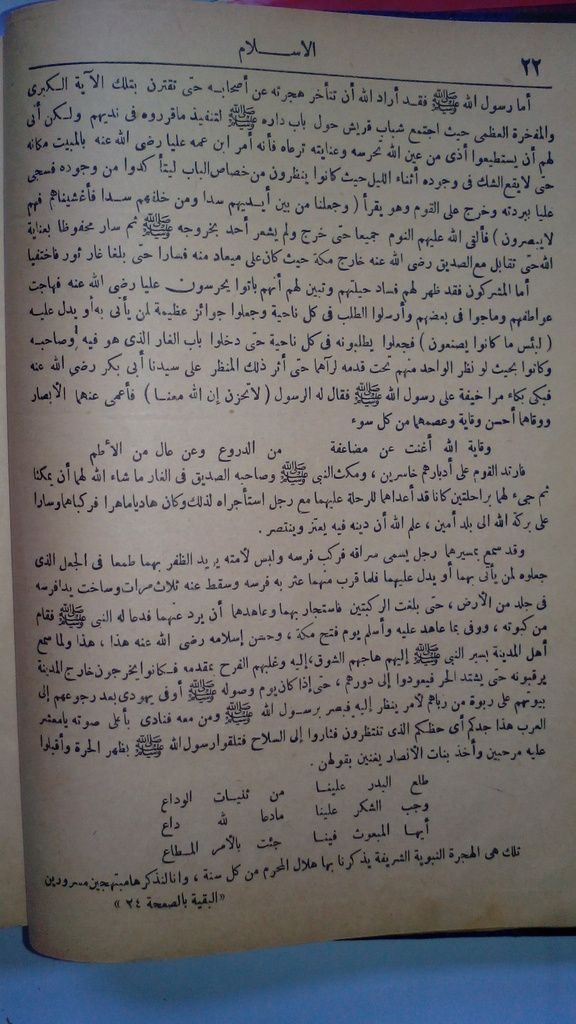 ٢٢
الاســـلام
أما رسول الله ﷺ فقـد أراد الله أن تتأخر هجرته عن أصحابـه حتى تقترن بتلك الآية الـكبرى
والمفخرة العظمى حيث اجتمع شباب قريش حول باب داره ﷺ لتنفيذ ماقرروه فى نديهم ولـكن أنى
لهم أن يستطيعوا أذى من عين الله تحرسه وعنايته ترعاه فأنه أمر ابن عمه عليا رضى الله عنه بالمبيت مكانه
حتى لايقع الشك فى وجوده أثناء الليل حيث كانوا ينظرون من خصاص الباب ليتأكدوا من وجوده فسجى
عليا ببردته وخرج على القوم وهو يقرأ ( وجعلنا من بين أيـديهم سدا ومن خلفهم سـدا فأغشيناهم فهم
لايبصرون ) فألقى الله عليهم النوم جميعا حتى خرج ولم يشعر أحد بخروجه ﷺ ثم سار محفوظا بعناية
الله حتى تقابل مع الصديق رضى الله عنه خارج مكة حيث كان على ميعاد منه فسارا حتى بلغا غار ثور فاختفيا
أما المشركون فقد ظهر لهم فساد حيلتهم وتبين لهم أنهم باتوا يحرسون عليا رضى الله عنه فهاجت
عواطفهم وماجوا فى بعضهم وأرسلوا الطلب فى كل ناحية وجعلوا جوائز عظيمة لمن يأتى به أو يدل عليـه
( لبئس ما كانوا يصنعون ) فجعلوا يطلبونه فى كل ناحية حتى دخلوا باب الغار الذى هو فيه وصاحبـه
وكانوا بحيث لو نظر الواحد منهم تحت قدمه لرآهما حتى أثر ذلك المنظر على سيدنا أبى بكر رضى الله عنه
فبكى بكاء مرا خيفة على رسول الله ﷺ فقال له الرسول ( لاتحزن إن الله معنـا ) فأعمى عنهما الأبصار
ووقاهما أحسن وقاية وعصمهما من كل سوء
وقاية الله أغنت عن مضاعفة من الدروع وعن عال من الأطم
فارتد القوم على أدبارهم خاسرين ، ومكث النبى ﷺ وصاحبه الصديق فى الغار ما شاء الله لهما أن يمكثا
ثم جىء لهما براحلتين كانا قد أعداهما للرحلة عليهما مع رجل استأجراه لذلك وكان هاديا ماهرا فركباهما وسارا
على بركة الله الى بلد أمين ، علم الله أن دينه فيه يعتز وينتصر .
وقد سمع بمسيرهما رجل يسمى سراقه فركب فرسه ولبس لأمته يريد الظفر بهما طمعا فى الجعل الذى
جعلوه لمن يأتى بهما أو يدل عليهما فلما قرب منهما عثر به فرسه وسقط عنه ثلاث مرات وساخت يدا فرسه
فى جلد من الأرض ، حتى بلغت الركبتين فاستجار بهما وعاهدهما أن يرد عنهما فدعا له النبى ﷺ فقام
من كبوته ، ووفى بما عاهد عليه وأسلم يوم فتح مكة ، وحسن إسلامه رضى الله عنه هذا ، هذا ولما سمع
أهل المدينة بسير النبى ﷺ إليهم هاجهم الشوق إليه وغلبهم الفرح بمقدمه فـكانوا يخرجون خارج المدينة
يرقبونه حتى يشتد الحر فيعودوا إلى دورهم ، حتى إذا كان يوم وصوله ﷺ أوفى يهودى بعد رجوعهم إلى
بيوتهم على ربوة من رباهم لأمر ينظر إليه فبصر برسـول الله ﷺ ومن معه فنادى بأعلى صوته يامعشر
العرب هذا جدكم أى حظـكم الذى تنتظرون فثاروا إلى السلاح فتلقوا رسول الله ﷺ بظهر الحرة وأقبلوا
عليه مرحبين وأخذ بنات الأنصار يغنين بقولهن .
طلع البدر علينـا من ثنيـات الوداع
وجب الشكر علينا مادعا لله داع
أيهـا المبعوث فينـا جئت بالأمر المـطاع
تلك هى الهجرة النبوية الشريفة يذكرنا بها هلال المحرم من كل سنة ، وانا لنذكرها مبتهجين مسرورين
«البقية بالصفحة ٢٤»